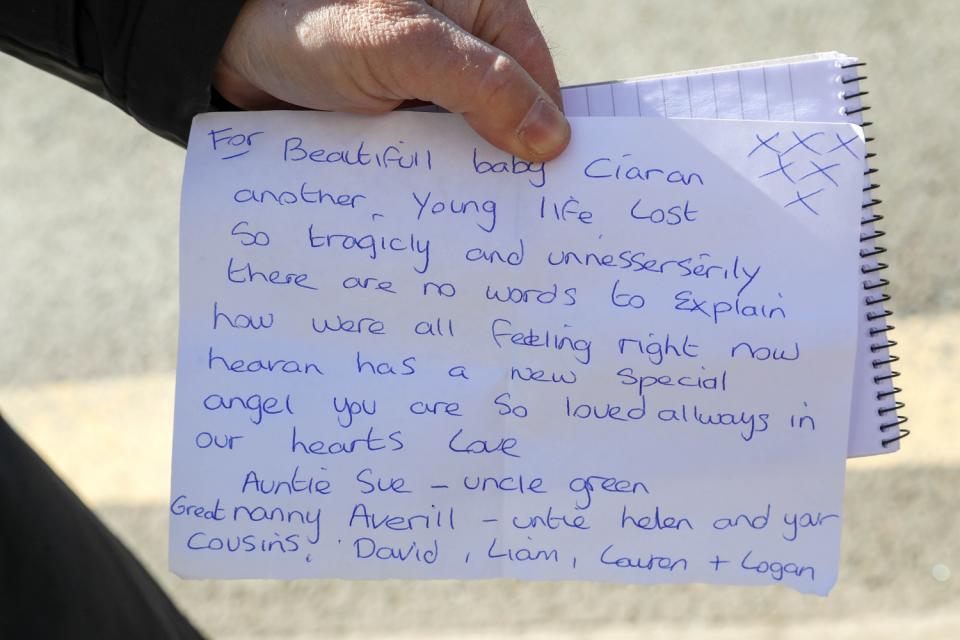 For Beautifull baby Ciaran
another young life lost
So tragicly and unnesserserily
there are no words to Explain
how were all feeling right now
hearan has a new special
angel you are so loved allways in
our hearts love
Auntie Sue - uncle green
Great nanny Averill - untie helen and your
cousins. David, Liam, Lauren + Logan
X X X
X X
X